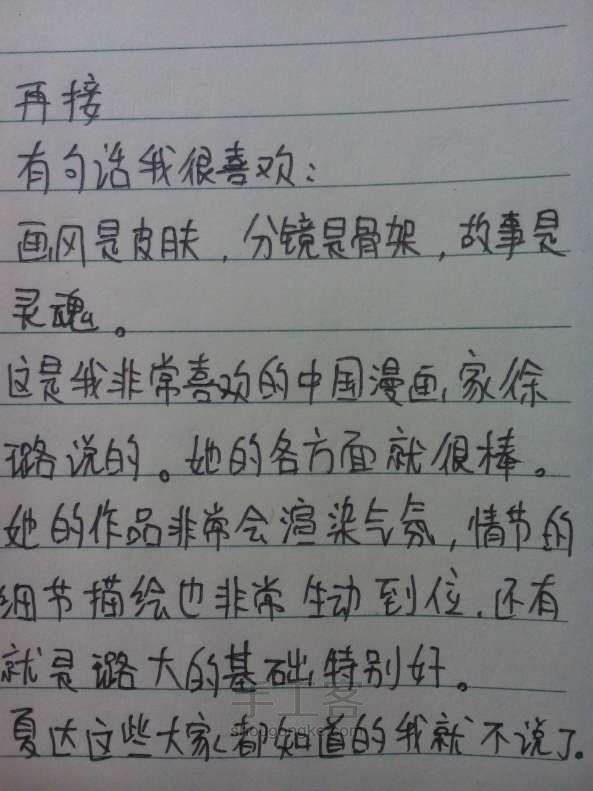 再接
有句话我很喜欢：
画风是皮肤，分镜是骨架，故事是
灵魂。
这是我非常喜欢的中国漫画家徐
璐说的。她的各方面就很棒。
她的作品非常会渲染气氛，情节的
细节描绘也非常生动到位，还有
就是璐大的基础特别好。
手工客
shougongke.com
夏达这些大家都知道的我就不说了。